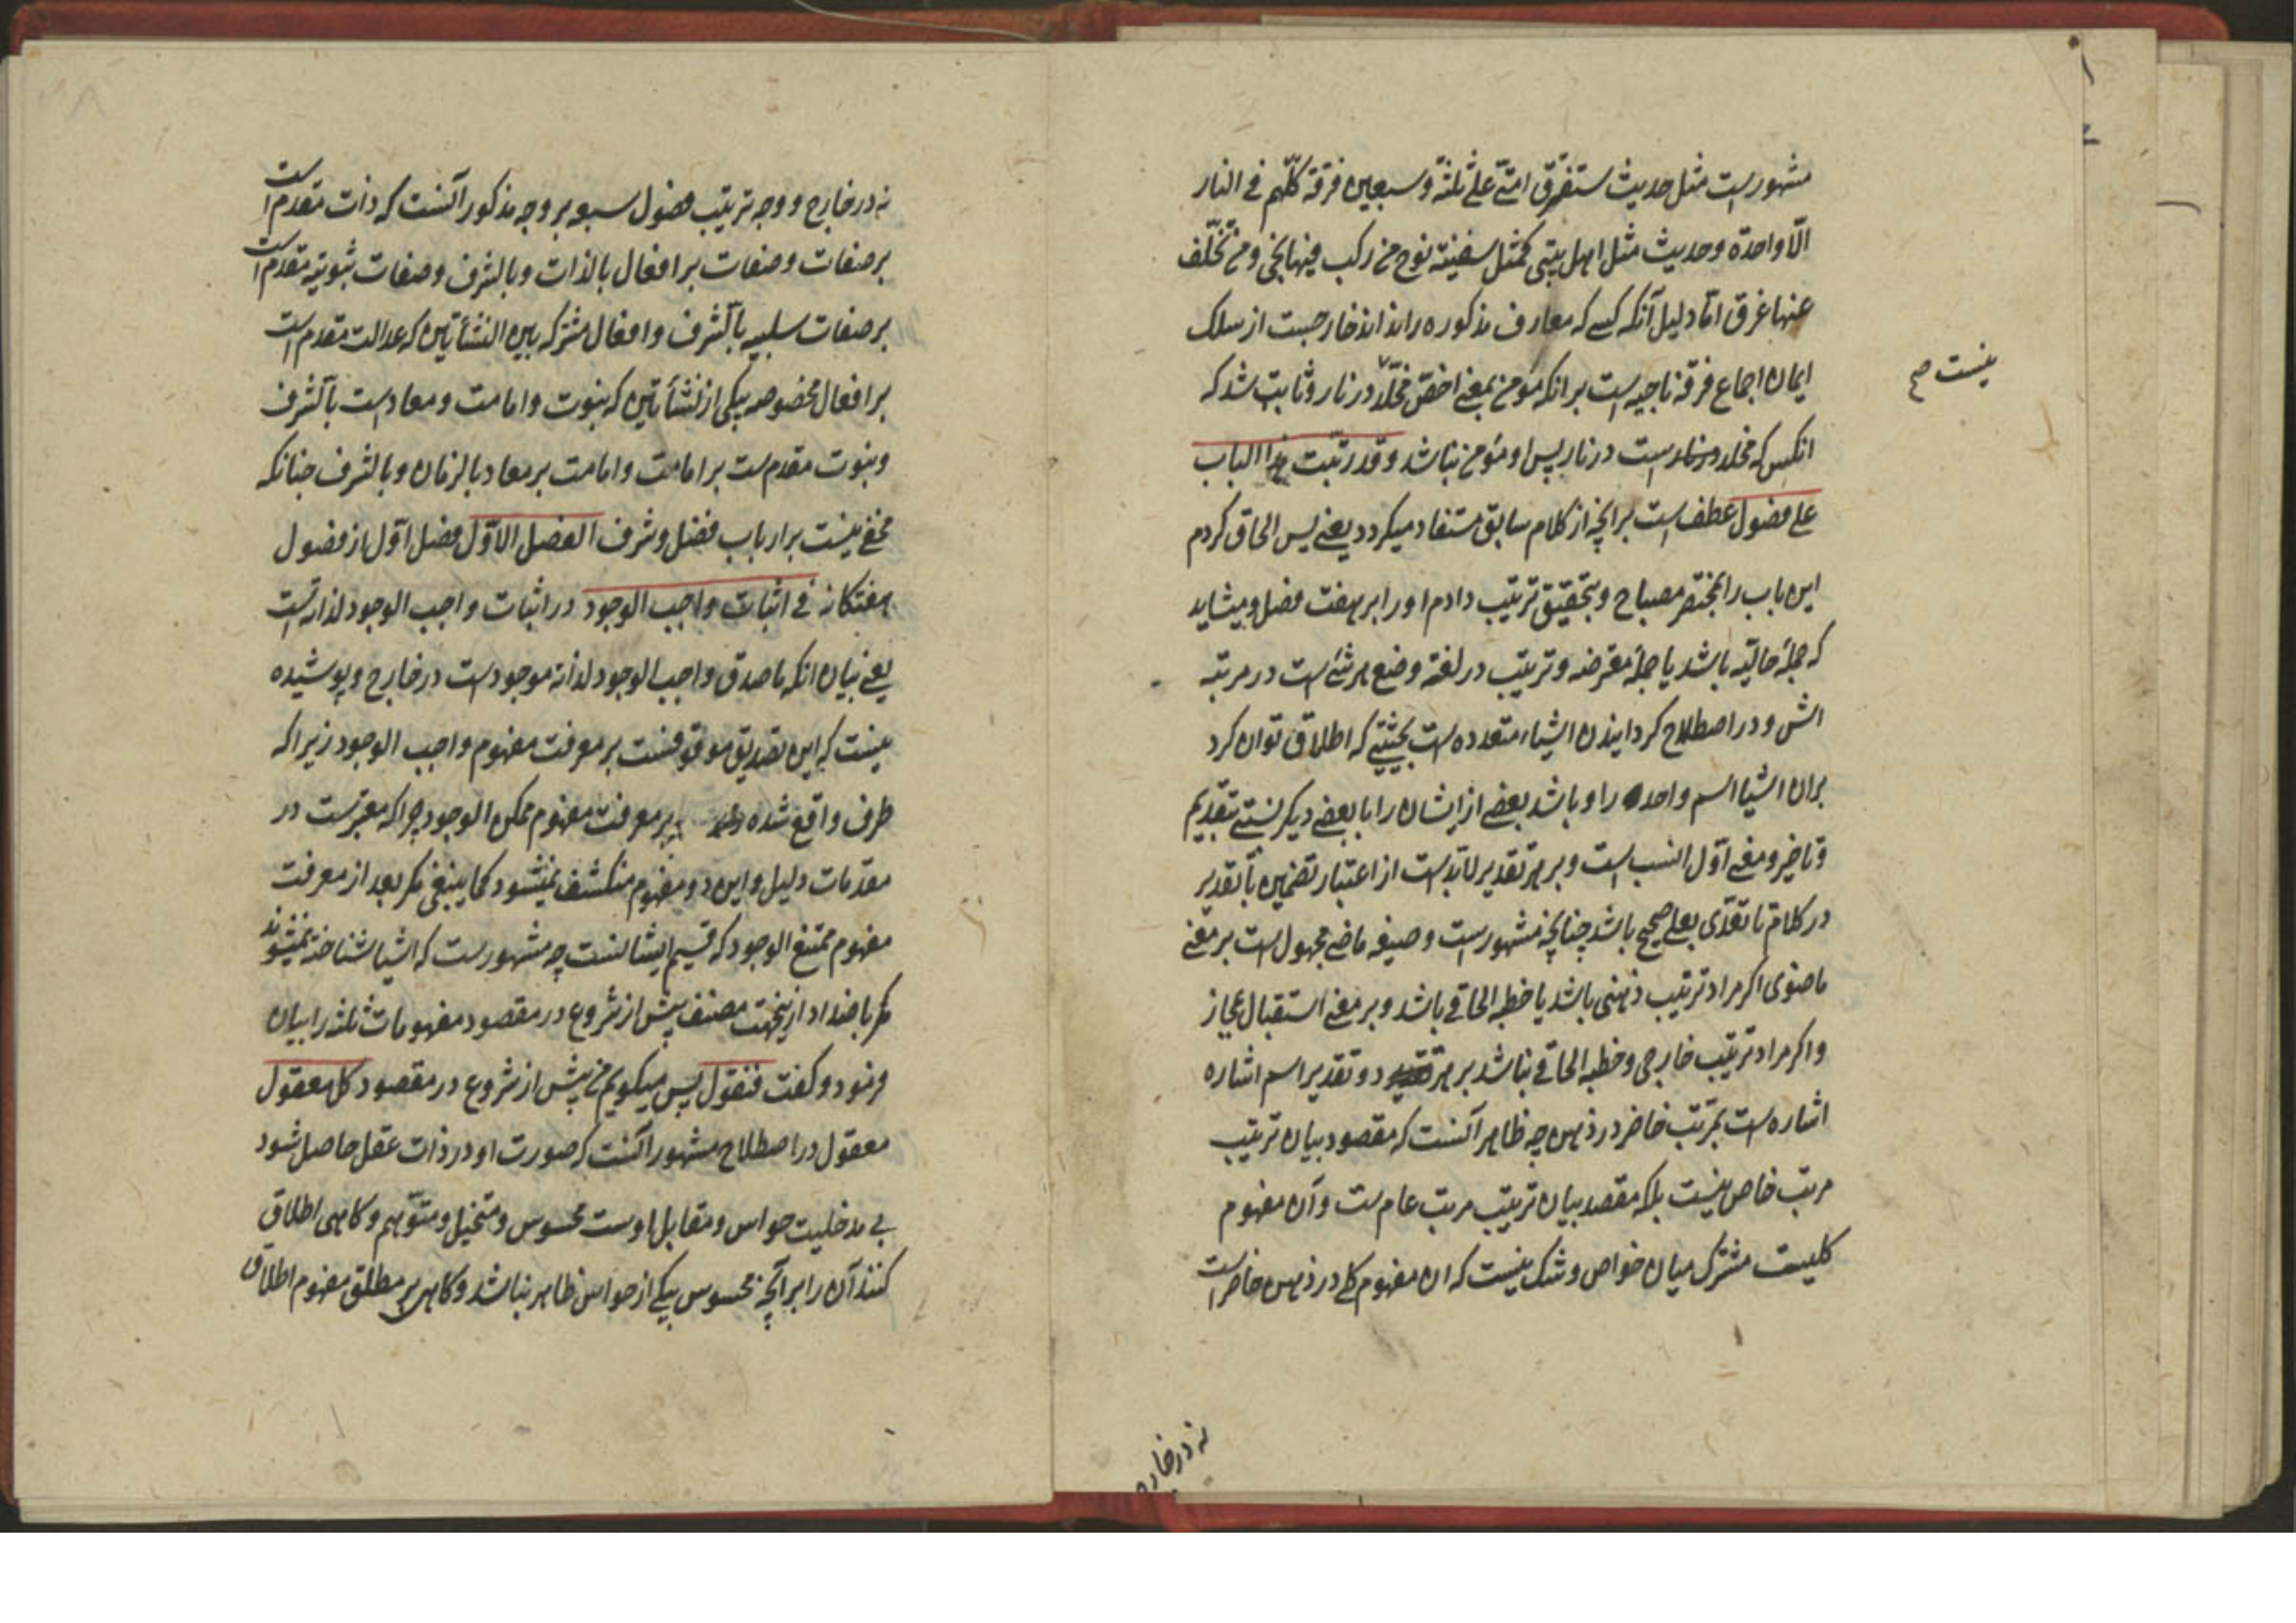 مشهورست مثل حدیث ستفرق امتی علی ثلثة و سبعین فرقة کلهم فی النار
الّا واحدة و حدیث مثل اهل بیتی کمثل سفینة نوح من رکب فیها نجی و من تخلّف
عنها غرق امّا دلیل آنکه کسی که معارف مذکوره را نداند خارجست از سلک
ایمان اجماع فرقه ناجیه است برانکه مؤمن بمعنی اخصّ مخلّد در نار و ثابت شد که
نیست صح
انکس که مخلد در نارست در نار پس او مؤمن نباشد و قد رتّبت هذا الباب
علی فصول عطف است برانچه از کلام سابق مستفاد میکردد یعنی پس الحاق کردم
این باب را بمختصر مصباح و بتحقیق ترتیب دادم او را بر هفت فصل و میشاید
که جملهٔ حالیّه باشد یا جملهٔ معترضه و ترتیب در لغة وضع هر شئ است در مرتبه
اش و در اصطلاح کردانیدن اشیاء متعدده است بحیثیتی که اطلاق توان کرد
بران اشیا اسم واحد را و باشد بعضی از ایشان را با بعضی دیکر نسبتی بتقدیم
و تاخیر و معنی اوّل انسب است و بر هر تقدیر لابدست از اعتبار تضمین یا تقدیر
در کلام تا تعدّی بعلی صحیح باشد چنانچه مشهورست و صیغه ماضی محمول است بر معنی
ماضوی اکر مراد ترتیب ذهنی باشد یا خطبه الحاقی باشد و بر معنی استقبال مجاز
و اکر مراد ترتیب خارجی و خطبه الحاقی نباشد بر هر دو تقدیر اسم اشاره
اشاره است بمرتب حاضر در ذهن چه ظاهر آنست که مقصود بیان ترتیب
مرتب خاص نیست بلکه مقصد بیان ترتیب مرتب عام ست و آن مفهوم
کلیست مشترک میان خواص و شک نیست که ان مفهوم کلی در ذهن حاضر است
نه در خارج
نه در خارج و وجه ترتیب فصول سبعه بر وجه مذکور آنست که ذات مقدم است
بر صفات و صفات بر افعال بالذات و بالشرف و صفات ثبوتیه مقدم است
بر صفات سلبیه بالشرف و افعال مشترکه بین النشأتین که عدالت مقدم است
بر افعال مخصوصه بیکی از نشأتین که نبوت و امامت و معاد است بالشرف
و نبوت مقدم ست بر امامت و امامت بر معاد بالزمان و بالشرف چنانکه
مخفی نیست بر ارباب فضل و شرف الفصل الاوّل فصل اوّل از فصول
هفتکانه فی اثبات واجب الوجود در اثبات واجب الوجود لذاته است
یعنی بیان انکه ماصدق واجب الوجود لذاته موجود است در خارج و پوشیده
نیست که این تصدیق موقوفست بر معرفت مفهوم واجب الوجود زیرا که
طرف واقع شده و بر معرفت مفهوم ممکن الوجود چرا که معتبرست در
مقدمات دلیل و این دو مفهوم منکشف نمیشود کما ینبغی مکر بعد از معرفت
مفهوم ممتنع الوجود که قسیم ایشانست چه مشهورست که اشیا شناخته نمیشوند
مکر باضداد ازینجهت مصنف پیش از شروع در مقصود مفهومات ثلثه را بیان
فرمود و کفت فنقول پس میکویم من پیش از شروع در مقصود کل معقول
معقول در اصطلاح مشهور آنست که صورت او در ذات عقل حاصل شود
بی مدخلیت حواس و مقابل اوست محسوس و متخیل و متوّهم و کاهی اطلاق
کنند آن را بر آنچه محسوس بیکی از حواس ظاهر نباشد و کاهی بر مطلق مفهوم اطلاق